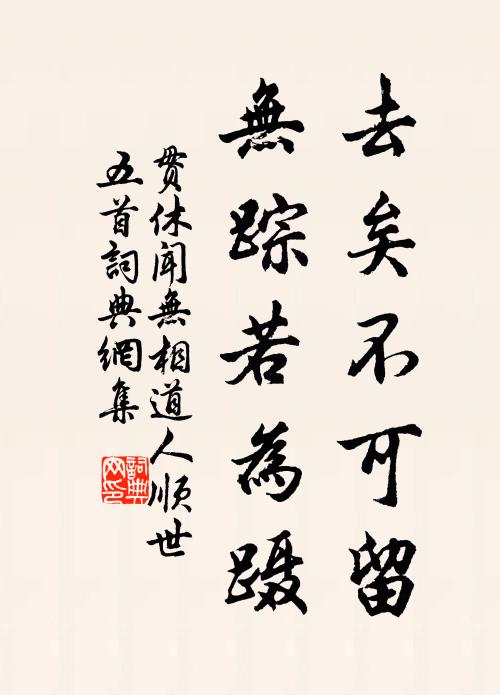 去矣不可留
無踪若為蹑
贯休闻無相道人顺世
五首詞典網集
詞典
网印